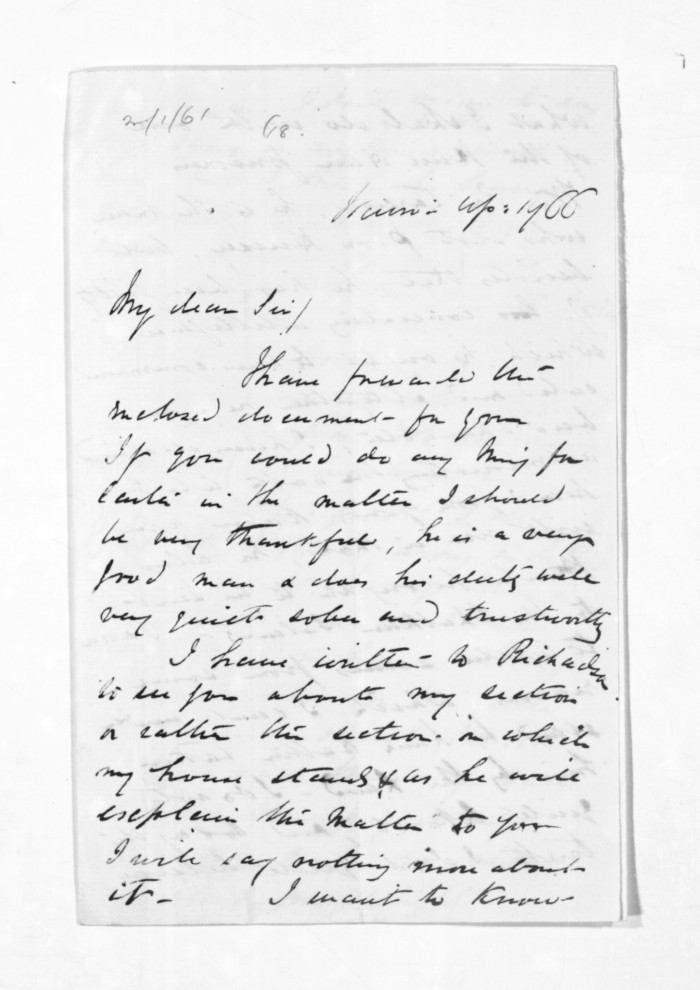 68.
Wairoa Ap: 19 66
My dear Sir/
I have forwarded the
enclosed document for you
If you could do any thing for
in the matter I should
be very thankful, he is a very
good man & does his duty well
very quiet sober and trustworthy
I have written to Richardson
to see you about my section
or rather the section on which
my house stands & as he will
explain the matter to you
I will say nothing more about
it - I want to know